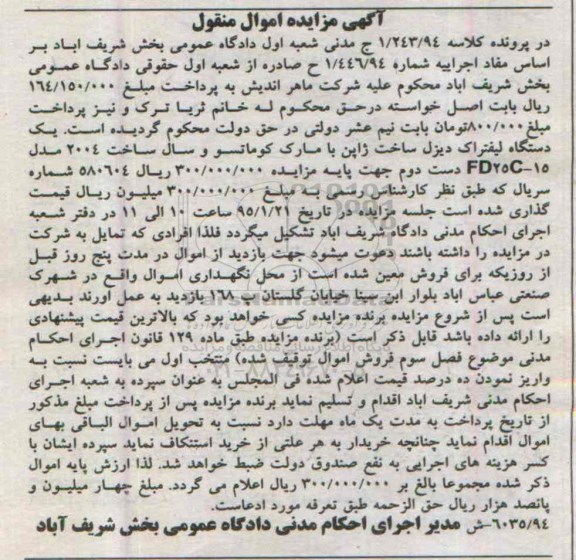 آگهی مزایده اموال منقول
در پرونده کلاسه ۱/۲۴۳/۹۴ ج مدنی شعبه اول دادگاه عمومی بخش شریف اباد بر
اساس مفاد اجراییه شماره ۱/۴۴۶/۹۴ ح صادره از شعبه اول حقوقی دادگاه عمومی
بخش شریف اباد محکوم علیه شرکت ماهر اندیش به پرداخت مبلغ ۱۶۴/۱۵۰/۰۰۰
ریال بابت اصل خواسته درحق محکوم له خانم ثریا ترک و نیز پرداخت
مبلغ۸۰۰/۰۰۰تومان بابت نیم عشر دولتی در حق دولت محکوم گردیده است. یک
دستگاه لیفتراک دیزل ساخت ژاپن با مارک کوماتسو و سال ساخت ۲۰۰۴ مدل
FD۲۵C-۱۵ دست دوم جهت پایه مزایده ۳۰۰/۰۰۰/۰۰۰ ریال ۵۸۰۶۰۴ شماره
سریال که طبق نظر کارشناس رسمی به مبلغ ۳۰۰/۰۰۰/۰۰۰ میلیون ریال قیمت
گذاری شده است جلسه مزایده در تاریخ ۹۵/۱/۲۱ ساعت ۱۰ الی ۱۱ در دفتر شعبه
اجرای احکام مدنی دادگاه شریف اباد تشکیل میگردد فلذا افرادی که تمایل به شرکت
در مزایده را داشته باشند دعوت میشود جهت بازدید از اموال در مدت پنج روز قبل
از روزیکه برای فروش معین شده است از محل نگهداری اموال واقع در شهرک
صنعتی عباس اباد بلوار ابن سینا خیابان گلستان پ ۱۶۸ بازدید به عمل اورند بدیهی
است پس از شروع مزایده برنده مزایده کسی خواهد بود که بالاترین قیمت پیشنهادی
را ارائه داده باشد قابل ذکر است (برنده مزایده طبق ماده ۱۲۹ قانون اجرای احکام
مدنی موضوع فصل سوم فروش اموال توقیف شده) منتخب اول می بایست نسبت به
واریز نمودن ده درصد قیمت اعلام شده فی المجلس به عنوان سپرده به شعبه اجرای
احکام مدنی شریف اباد اقدام و تسلیم نماید برنده مزایده پس از پرداخت مبلغ مذکور
از تاریخ پرداخت به مدت یک ماه مهلت دارد نسبت به تحویل اموال الباقی بهای
اموال اقدام نماید چنانچه خریدار به هر علتی از خرید استنکاف نماید سپرده ایشان با
کسر هزینه های اجرایی به نفع صندوق دولت ضبط خواهد شد. لذا ارزش پایه اموال
ذکر شده مجموعا بالغ بر ۳۰۰/۰۰۰/۰۰۰ ریال اعلام می گردد. مبلغ چهار میلیون و
پانصد هزار ریال حق الزحمه طبق تعرفه مورد ادعاست.
۶۰۳۵/۹۴-ش مدیر اجرای احکام مدنی دادگاه عمومی بخش شریف آباد